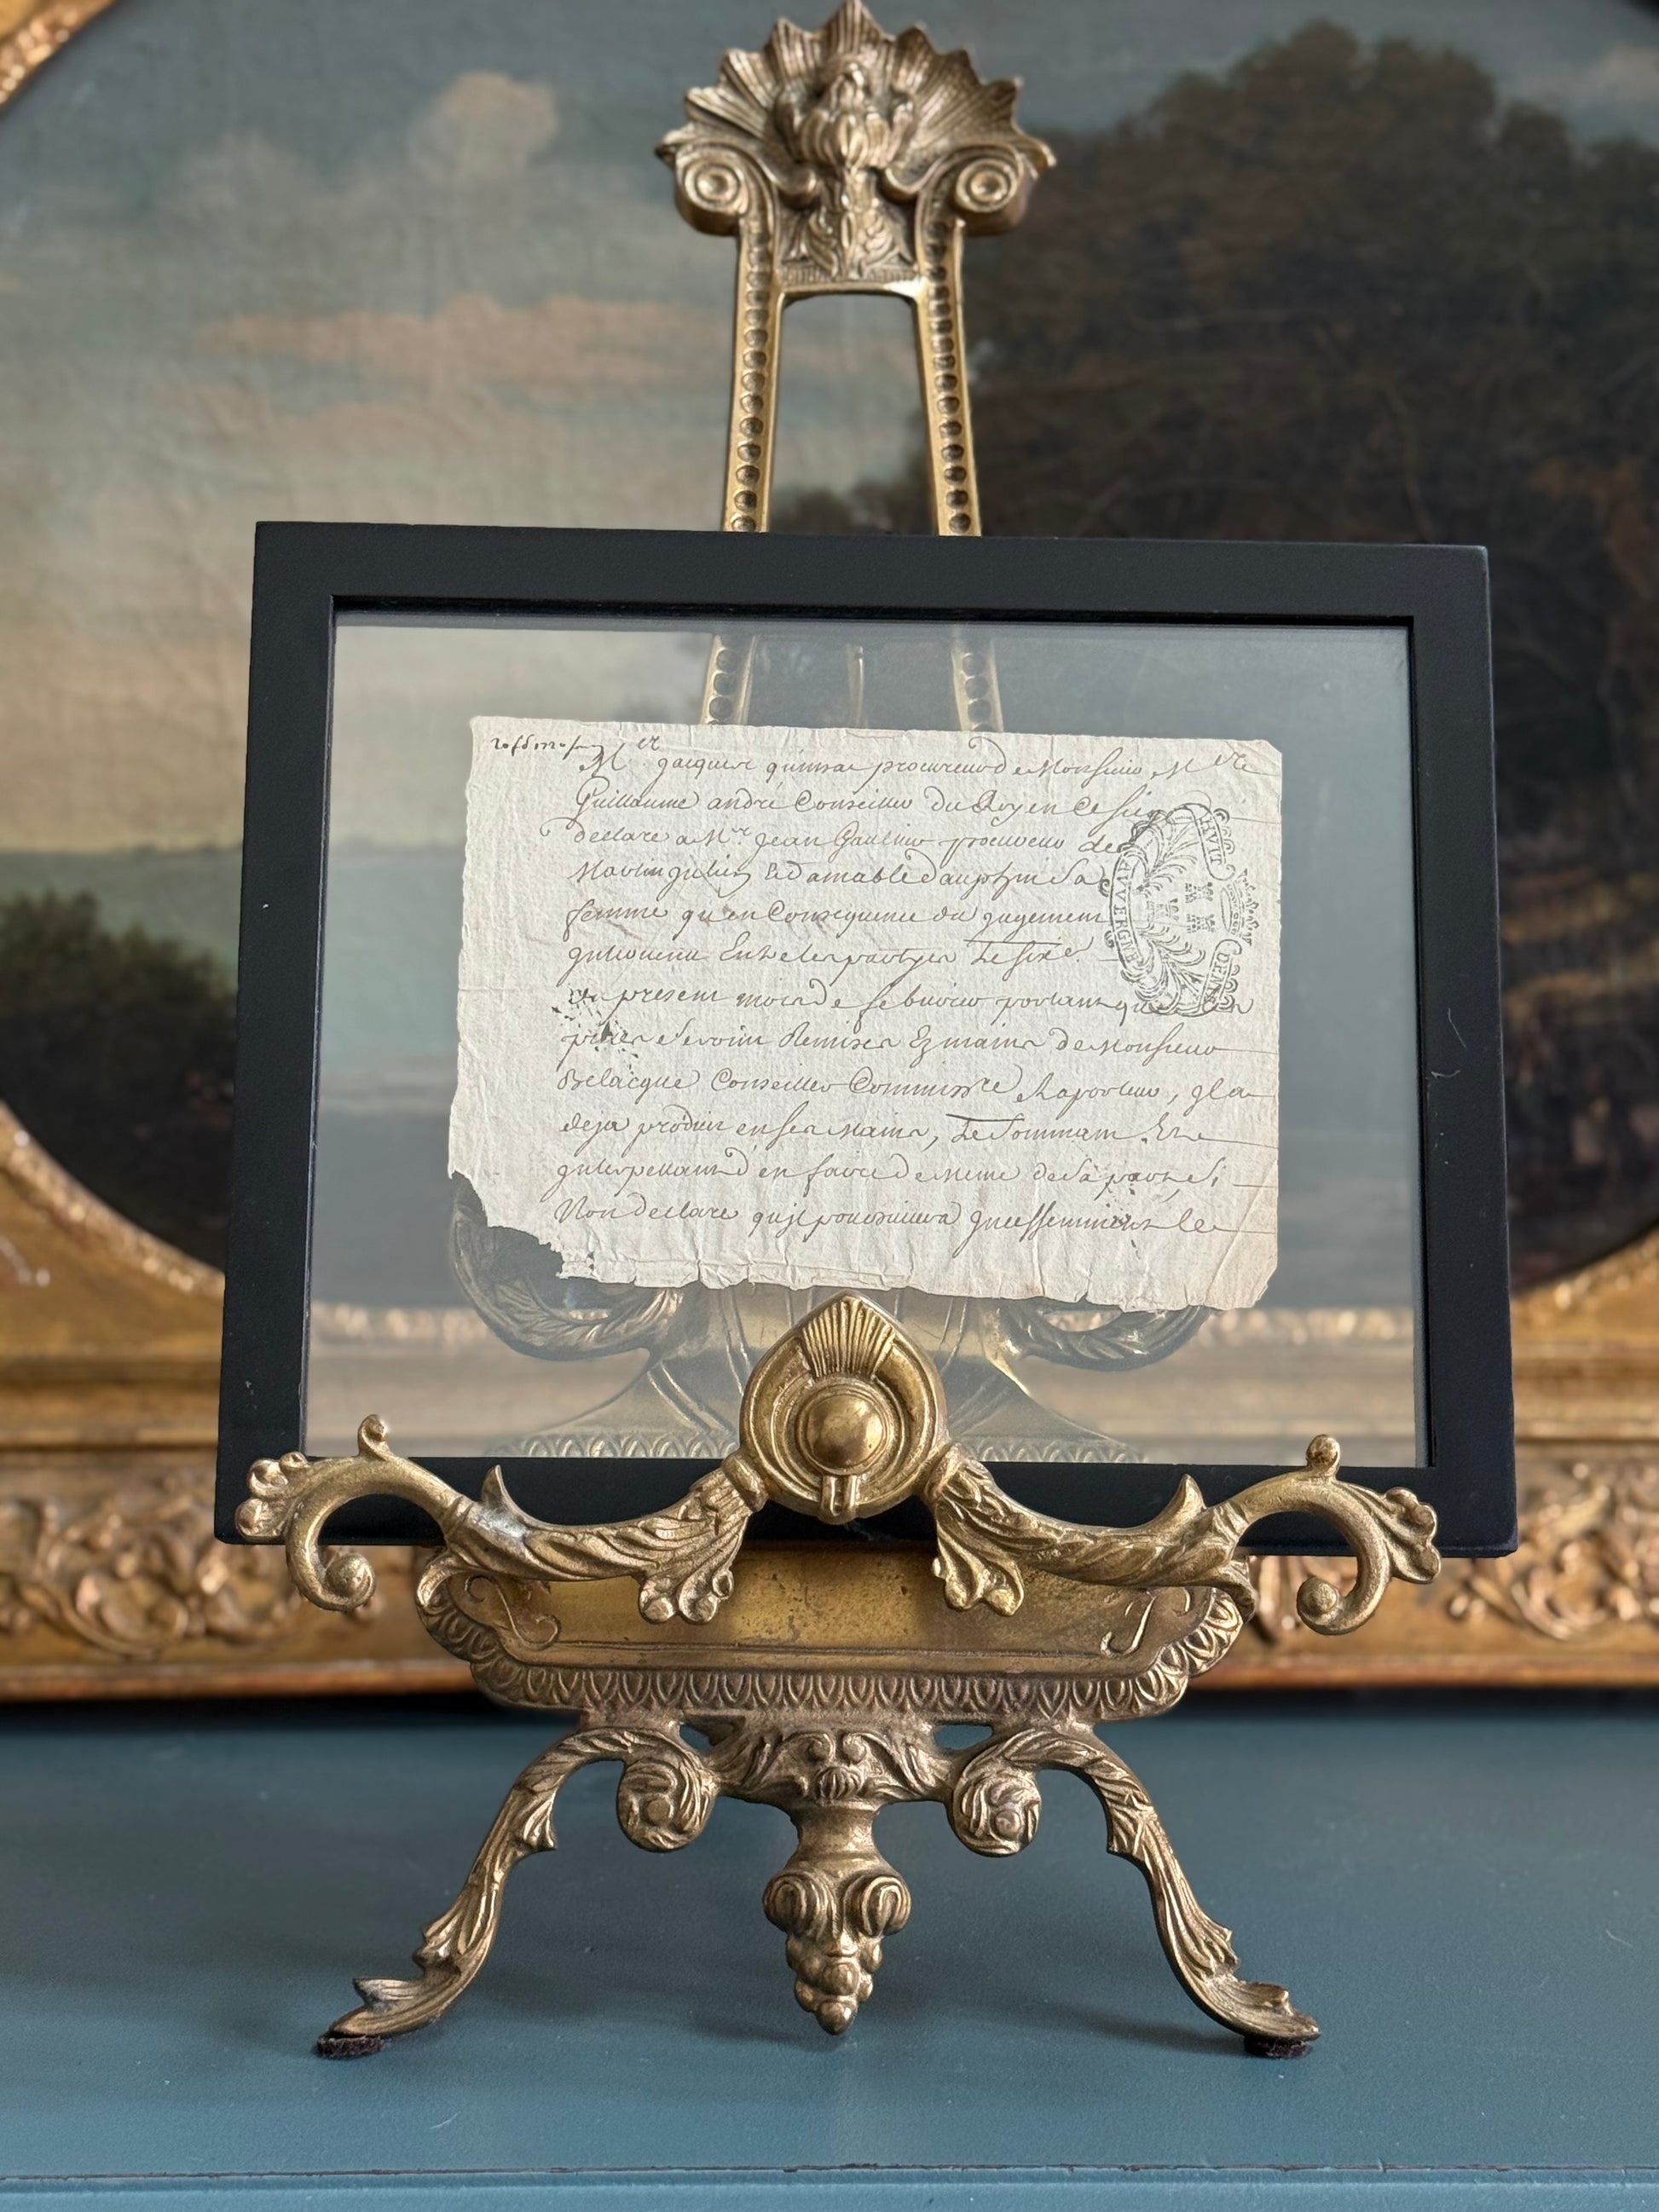 Mr Jacques procureur de Monsieur Mre
Guillaume andré Conseiller du Roy en ce sieg
declare a Mr Jean Gaultier procureur de
Martin Julien Et amable dauphin Sa
femme qu en Consequence du jugement
Intervenu Entre les partyes Le sixe
du present mois de febvrier portant que
pieces seroint Remises Ez mains de Monsieur
Conseiller Commissre Raporteur, Il a
deja produit en ses mains, Le Sommant Et
Interpellant d'en faire de meme de Sa part, Si
Non declare qu'il poursuivra Incessemment le
HUIT
DENS
AUVERGNE